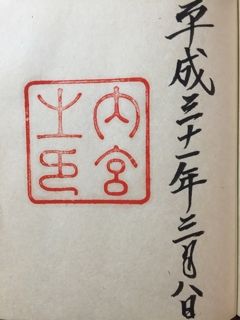 平成三十一年三月八日
内宮
之印